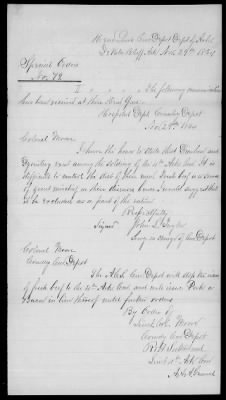 Head Qrs Cav Depot Dept of Ark
De Valls Bluff Ark Nov 29th 1864
Special Orders
No. 72
I The following communication
has been received at these Head Qrs.
Hospital Dept Cavalry Depot
Nov 28th 1864
Colonel Moore
I have the honor to state that Diarrhea and
Dysentery exist among the soldiers of the 4th Arks Cav. It is
difficult to control the diet of these men. Fresh beef is a source
of great mischief in these diseases hence I would suggest that
it be excluded as a part of the ration
Respectfully
Signed John L.
Surg in charge of Cav Depot
Colonel Moore
Comdg Cav Depot
The A.C.S. Cav Depot will stop the issue
of fresh beef to the 4th Arks Cav and will issue Pork or
Bacon in lieu thereof until further orders
By Order of
Lieut Col. Moore
Comdg Cav Depot
Lieut 4th Ark Cav
A.A.A. General